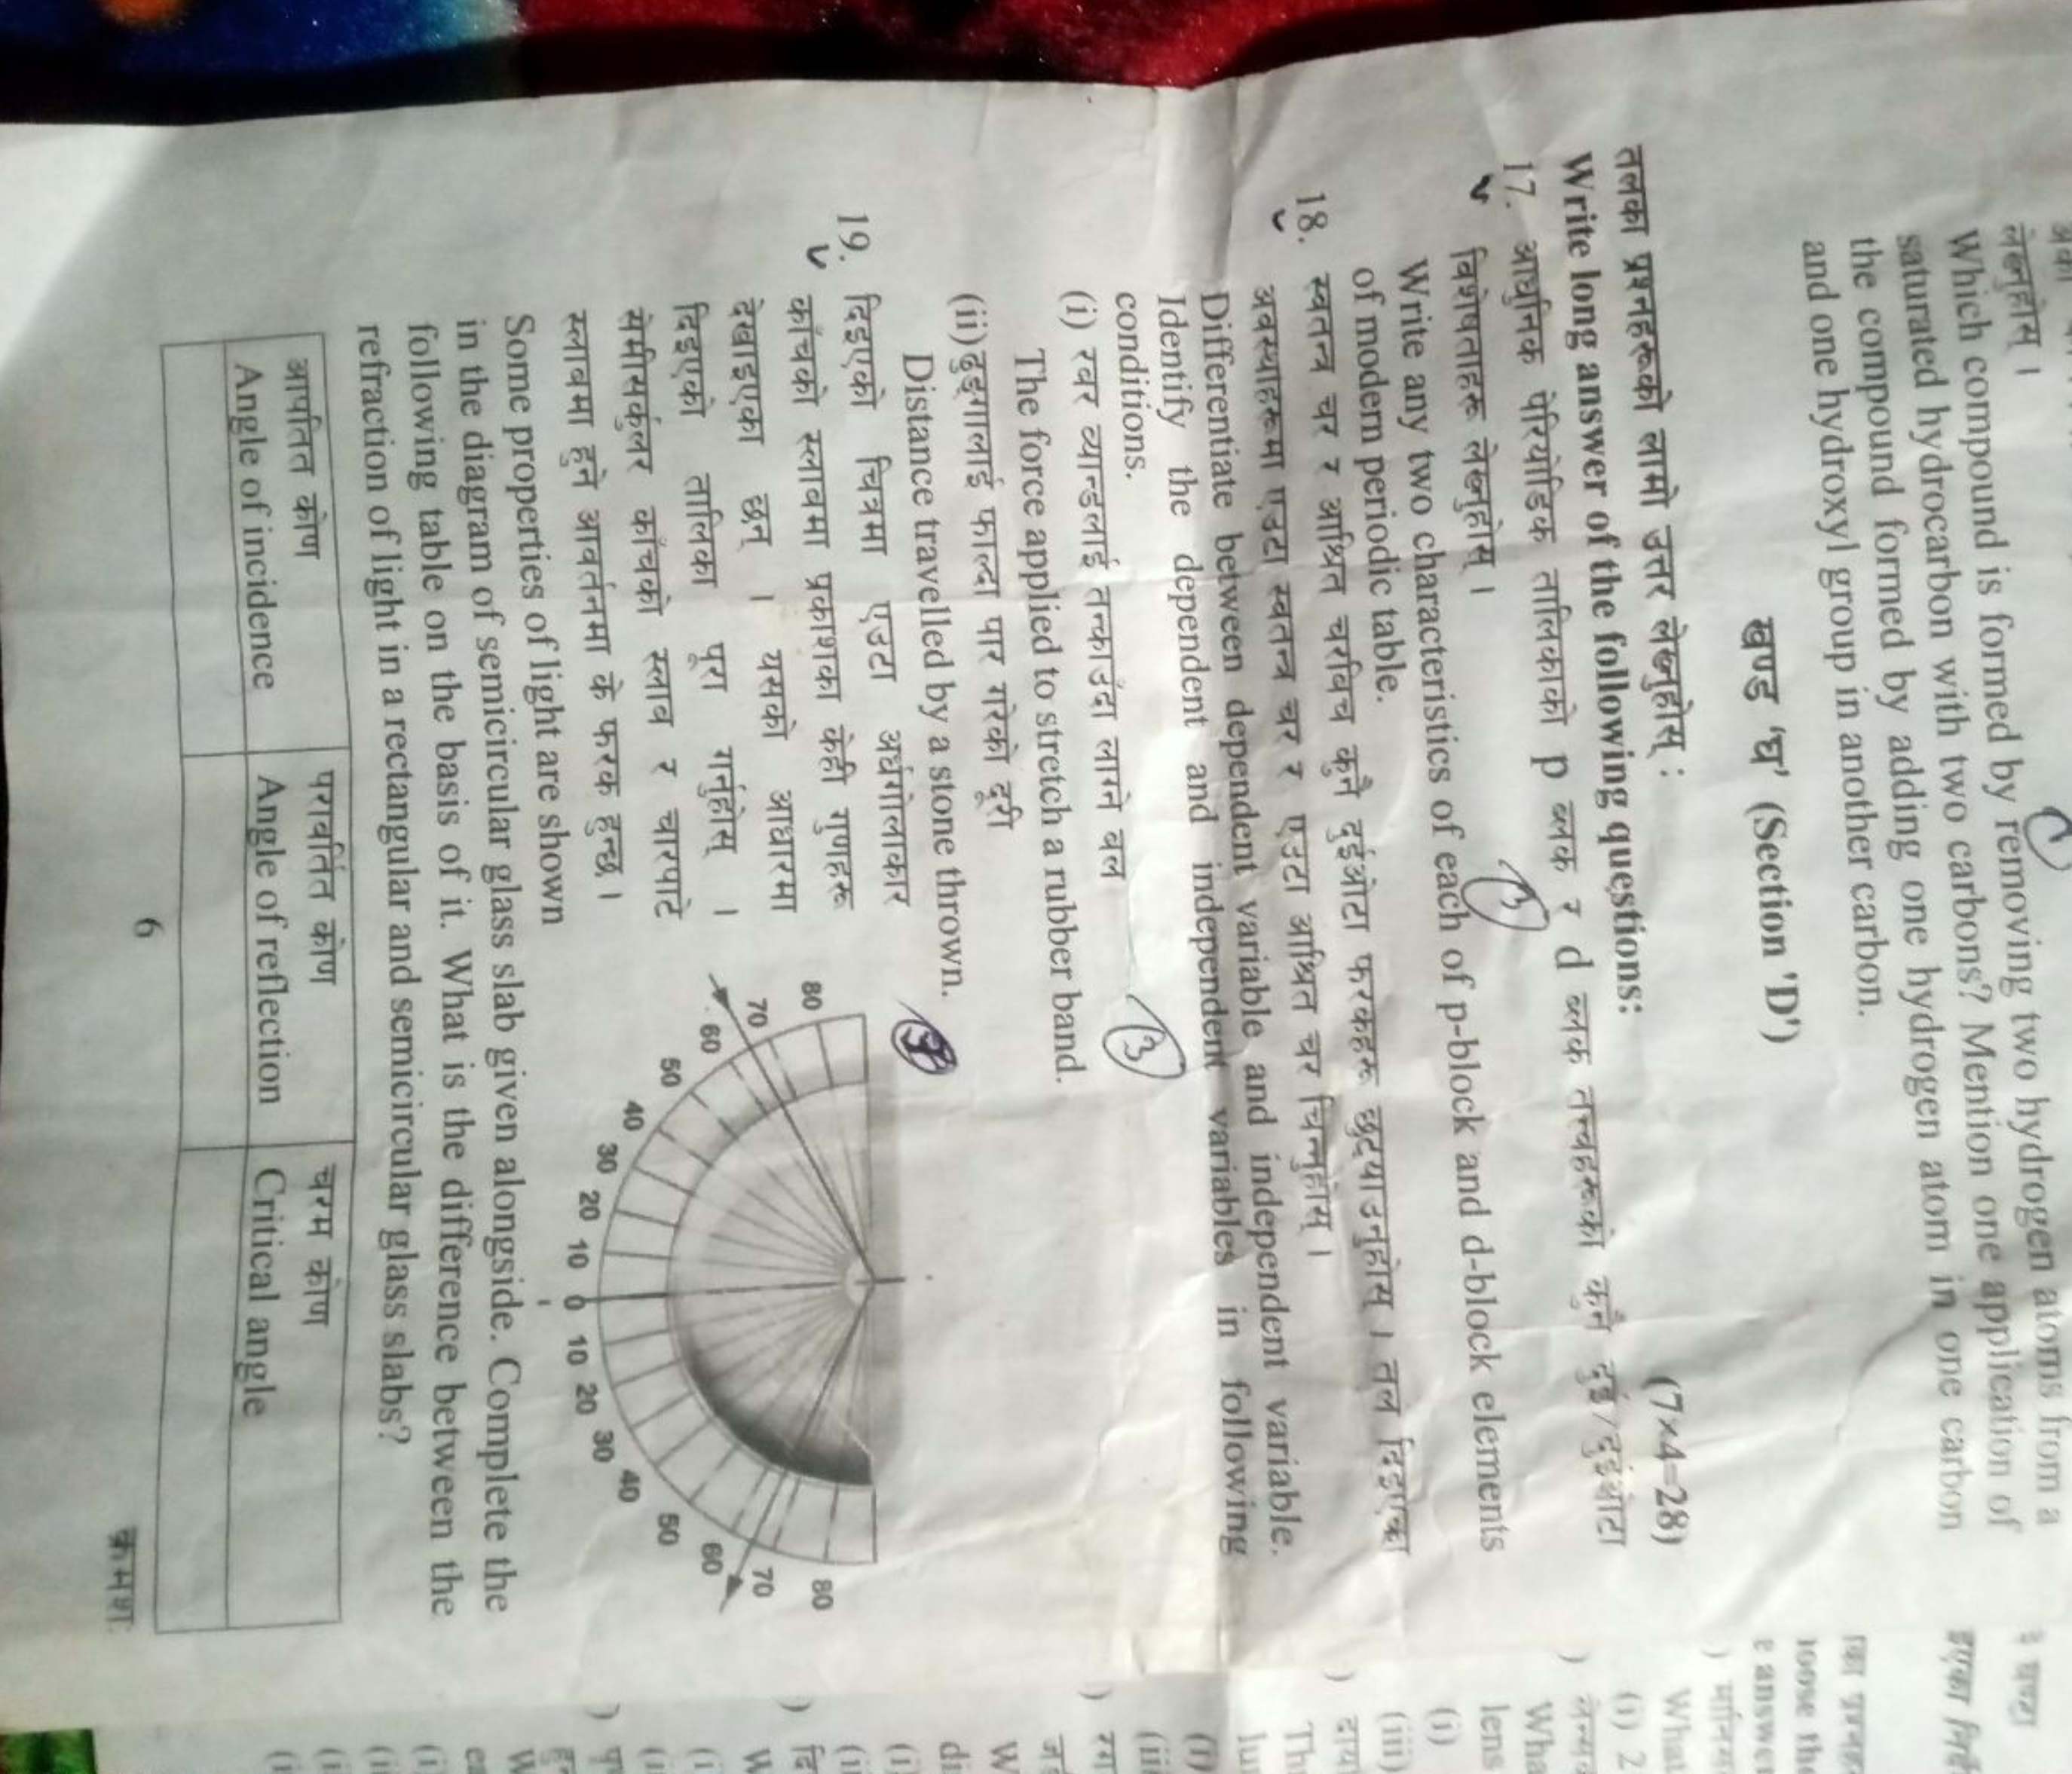 लेख्नुहोस् ।
Which compound is formed by removing two hydrogen atoms from a
saturated hydrocarbon with two carbons? Mention one application of
the compound formed by adding one hydrogen atom in one carbon
and one hydroxyl group in another carbon.
खण्ड 'घ' (Section 'D')
तलका प्रश्नहरूको लामो उत्तर लेख्नुहोस् :
(7×4=28)
Write long answer of the following questions:
17. आधुनिक पेरियोडिक तालिकाको p ब्लक र d ब्लक तत्त्वहरूको कुनै दुई/दुईओटा
विशेषताहरू लेख्नुहोस् ।
Write any two characteristics of each of p-block and d-block elements
of modern periodic table.
3
18. स्वतन्त्र चर र आश्रित चरबिच कुनै दुईओटा फरकहरू छुट्याउनुहोस् । तल दिइएका
अवस्थाहरूमा एउटा स्वतन्त्र चर र एउटा आश्रित चर चिन्नुहोस् ।
Differentiate between dependent variable and independent variable.
Identify the dependent and independent variables in following
conditions.
3
(i) रबर ब्यान्डलाई तन्काउँदा लाग्ने बल
The force applied to stretch a rubber band.
(ii) ढुङ्गालाई फाल्दा पार गरेको दूरी
Distance travelled by a stone thrown.
19. दिइएको चित्रमा एउटा अर्धगोलाकार
काँचको स्लाबमा प्रकाशका केही गुणहरू
देखाइएका छन् । यसको आधारमा
दिइएको तालिका पूरा गर्नुहोस् ।
सेमीसर्कुलर काँचको स्लाब र चारपाटे
स्लाबमा हुने आवर्तनमा के फरक हुन्छ ।
80 70 60 50 40 30 20 10 0 10 20 30 40 50 60 70 80
Some properties of light are shown
in the diagram of semicircular glass slab given alongside. Complete the
following table on the basis of it. What is the difference between the
refraction of light in a rectangular and semicircular glass slabs?
आपतित कोण परावर्तित कोण चरम कोण
Angle of incidence Angle of reflection Critical angle
6
क्रमशः